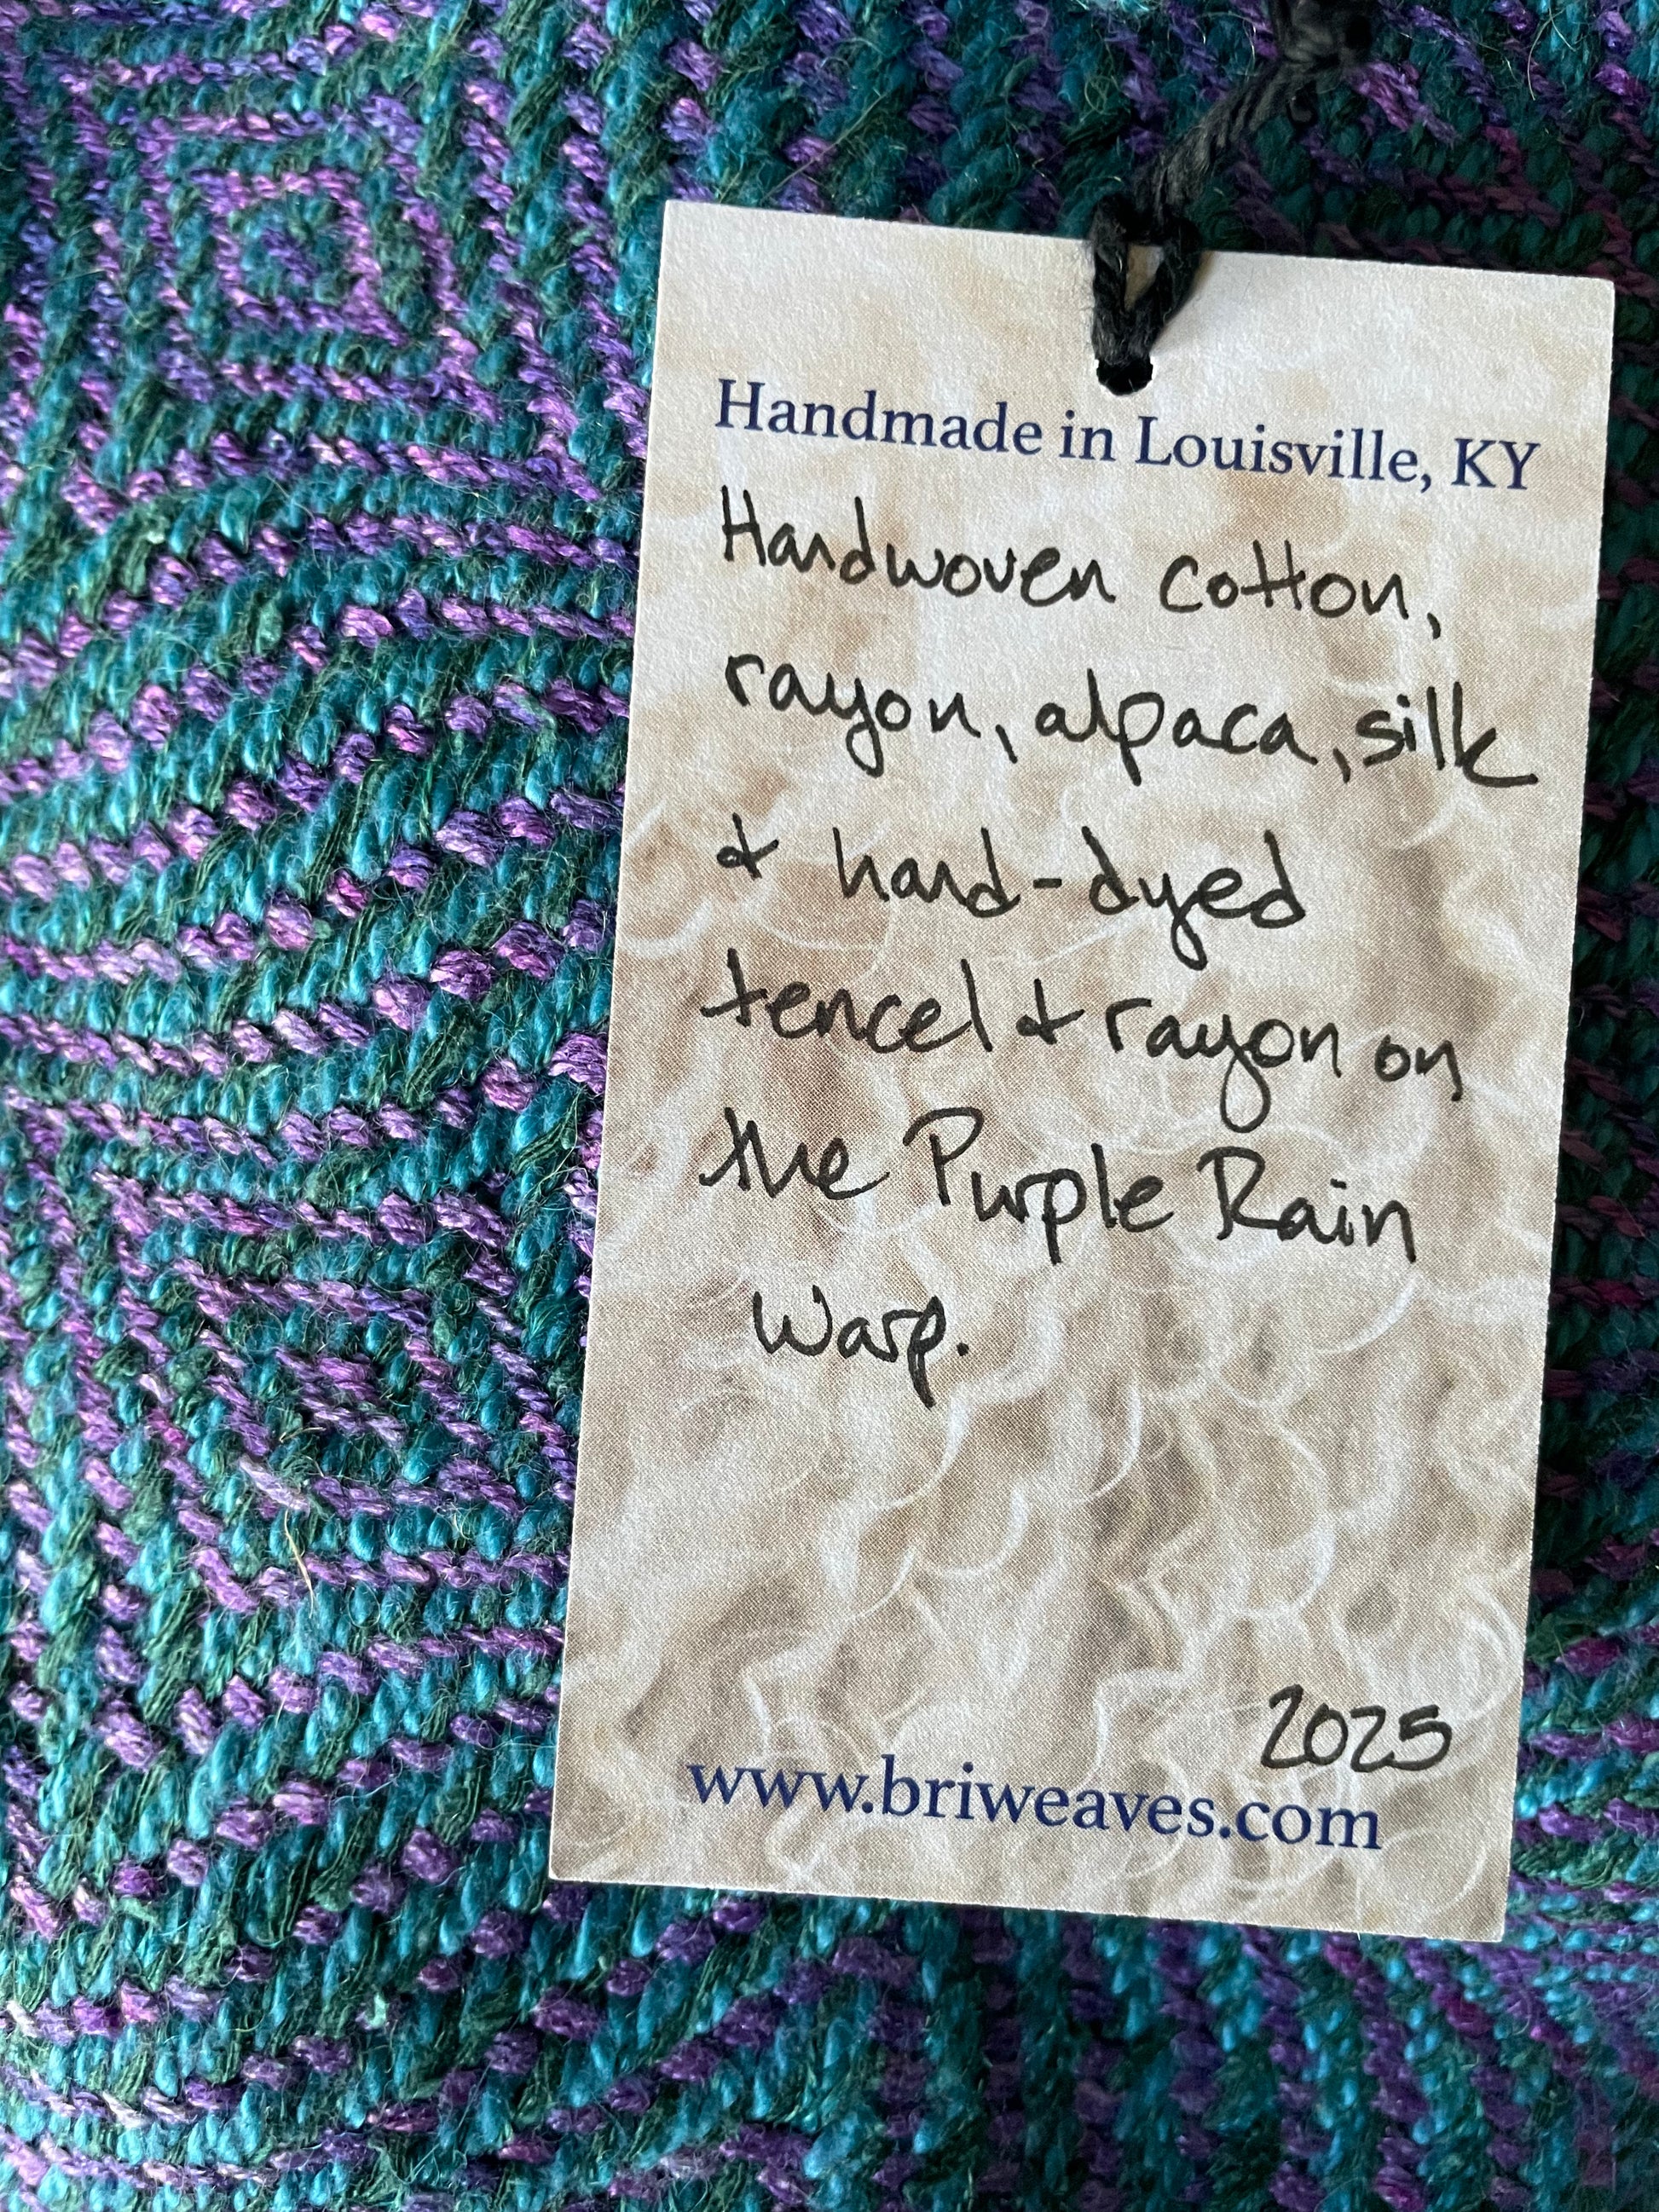 Handmade in Louisville, KY
Handwoven cotton,
rayon, alpaca, silk
& hand-dyed
tencel & rayon on
the Purple Rain
Warp.
2025
www.briweaves.com